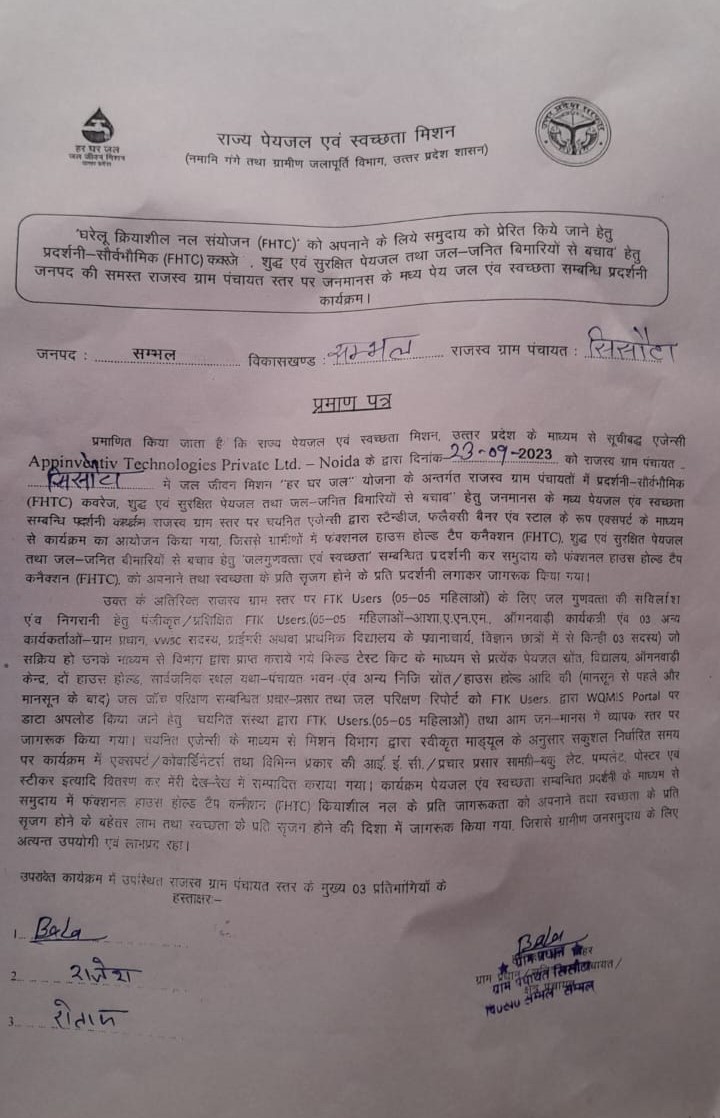 हर घर जल
जल जीवन मिशन
उत्तर प्रदेश
राज्य पेयजल एवं स्वच्छता मिशन
(नमामि गंगे तथा ग्रामीण जलापूर्ति विभाग, उत्तर प्रदेश शासन)
उत्तर प्रदेश सरकार
'घरेलू क्रियाशील नल संयोजन (FHTC)' को अपनाने के लिये समुदाय को प्रेरित किये जाने हेतु
प्रदर्शनी–सौर्वभौमिक (FHTC) कवरेज , शुद्ध एवं सुरक्षित पेयजल तथा जल–जनित बिमारियों से बचाव' हेतु
जनपद की समस्त राजस्व ग्राम पंचायत स्तर पर जनमानस के मध्य पेय जल एंव स्वच्छता सम्बन्धि प्रदर्शनी
कार्यक्रम।
जनपद : सम्भल विकासखण्ड : सम्भल राजस्व ग्राम पंचायत : सिसौटा
प्रमाण पत्र
प्रमाणित किया जाता है कि राज्य पेयजल एवं स्वच्छता मिशन, उत्तर प्रदेश के माध्यम से सूचीबद्ध एजेन्सी
Appinventiv Technologies Private Ltd. – Noida के द्वारा दिनांक 23-09-2023 को राजस्व ग्राम पंचायत
सिसोटा में जल जीवन मिशन "हर घर जल" योजना के अन्तर्गत राजस्व ग्राम पंचायतों में प्रदर्शनी–सौर्वभौमिक
(FHTC) कवरेज, शुद्ध एवं सुरक्षित पेयजल तथा जल–जनित बिमारियों से बचाव" हेतु जनमानस के मध्य पेयजल एंव स्वच्छता
सम्बन्धि प्रदर्शनी कार्यक्रम राजस्व ग्राम स्तर पर चयनित एजेन्सी द्वारा स्टैन्डीज, फलैक्सी बैनर एंव स्टाल के रूप एक्सपर्ट के माध्यम
से कार्यक्रम का आयोजन किया गया, जिससे ग्रामीणों में फंक्शनल हाउस होल्ड टैप कनैक्शन (FHTC), शुद्ध एवं सुरक्षित पेयजल
तथा जल–जनित बीमारियों से बचाव हेतु 'जलगुणवत्ता एंव स्वच्छता' सम्बन्धित प्रदर्शनी कर समुदाय को फंक्शनल हाउस होल्ड टैप
कनैक्शन (FHTC), को अपनाने तथा स्वच्छता के प्रति सृजग होने के प्रति प्रदर्शनी लगाकर जागरूक किया गया।
उक्त के अतिरिक्त राजस्व ग्राम स्तर पर FTK Users (05–05 महिलाओं) के लिए जल गुणवत्ता की सर्विलांश
एंव निगरानी हेतु पंजीकृत/प्रशिक्षित FTK Users.(05–05 महिलाओं–आशा,ए.एन.एम., आँगनवाड़ी कार्यकत्री एंव 03 अन्य
कार्यकर्ताओं–ग्राम प्रधान, vwsc सदस्य, प्राईमरी अथवा प्राथमिक विद्यालय के प्रधानाचार्य, विज्ञान छात्रों में से किन्ही 03 सदस्य) जो
सक्रिय हो उनके माध्यम से विभाग द्वारा प्राप्त कराये गये फिल्ड टेस्ट किट के माध्यम से प्रत्येक पेयजल स्रोत, विद्यालय, आँगनवाड़ी
केन्द्र, दो हाउस होल्ड, सार्वजनिक स्थल यथा–पंचायत भवन एंव अन्य निजि स्रोत/हाउस होल्ड आदि की (मानसून से पहले और
मानसून के बाद) जल जाँच परिक्षण सम्बन्धित प्रचार–प्रसार तथा जल परिक्षण रिपोर्ट को FTK Users द्वारा WQMIS Portal पर
डाटा अपलोड किया जाने हेतु चयनित संस्था द्वारा FTK Users.(05–05 महिलाओं) तथा आम जन–मानस में व्यापक स्तर पर
जागरूक किया गया। चयनित एजेन्सी के माध्यम से मिशन विभाग द्वारा स्वीकृत माड्यूल के अनुसार सकुशल निर्धारित समय
पर कार्यक्रम में एक्सपर्ट/कोवार्डिनेटर्स तथा विभिन्न प्रकार की आई. ई. सी./प्रचार प्रसार सामग्री–बकु लेट, पम्पलेट, पोस्टर एंव
स्टीकर इत्यादि वितरण कर मेरी देख–रेख में सम्पादित कराया गया। कार्यक्रम पेयजल एंव स्वच्छता सम्बन्धित प्रदर्शनी के माध्यम से
समुदाय में फंक्शनल हाउस होल्ड टैप कनैक्शन (FHTC) कियाशील नल के प्रति जागरूकता को अपनाने तथा स्वच्छता के प्रति
सृजग होने के बहेतर लाभ तथा स्वच्छता के प्रति सृजग होने की दिशा में जागरूक किया गया, जिससे ग्रामीण जनसमुदाय के लिए
अत्यन्त उपयोगी एवं लाभप्रद रहा।
उपरोक्त कार्यक्रम में उपस्थित राजस्व ग्राम पंचायत स्तर के मुख्य 03 प्रतिभागियों के
हस्ताक्षर:–
1. Bala
2. राजेश
3.
Bala
ग्राम प्रधान
ग्राम पंचायत सिसौटा
सम्भल